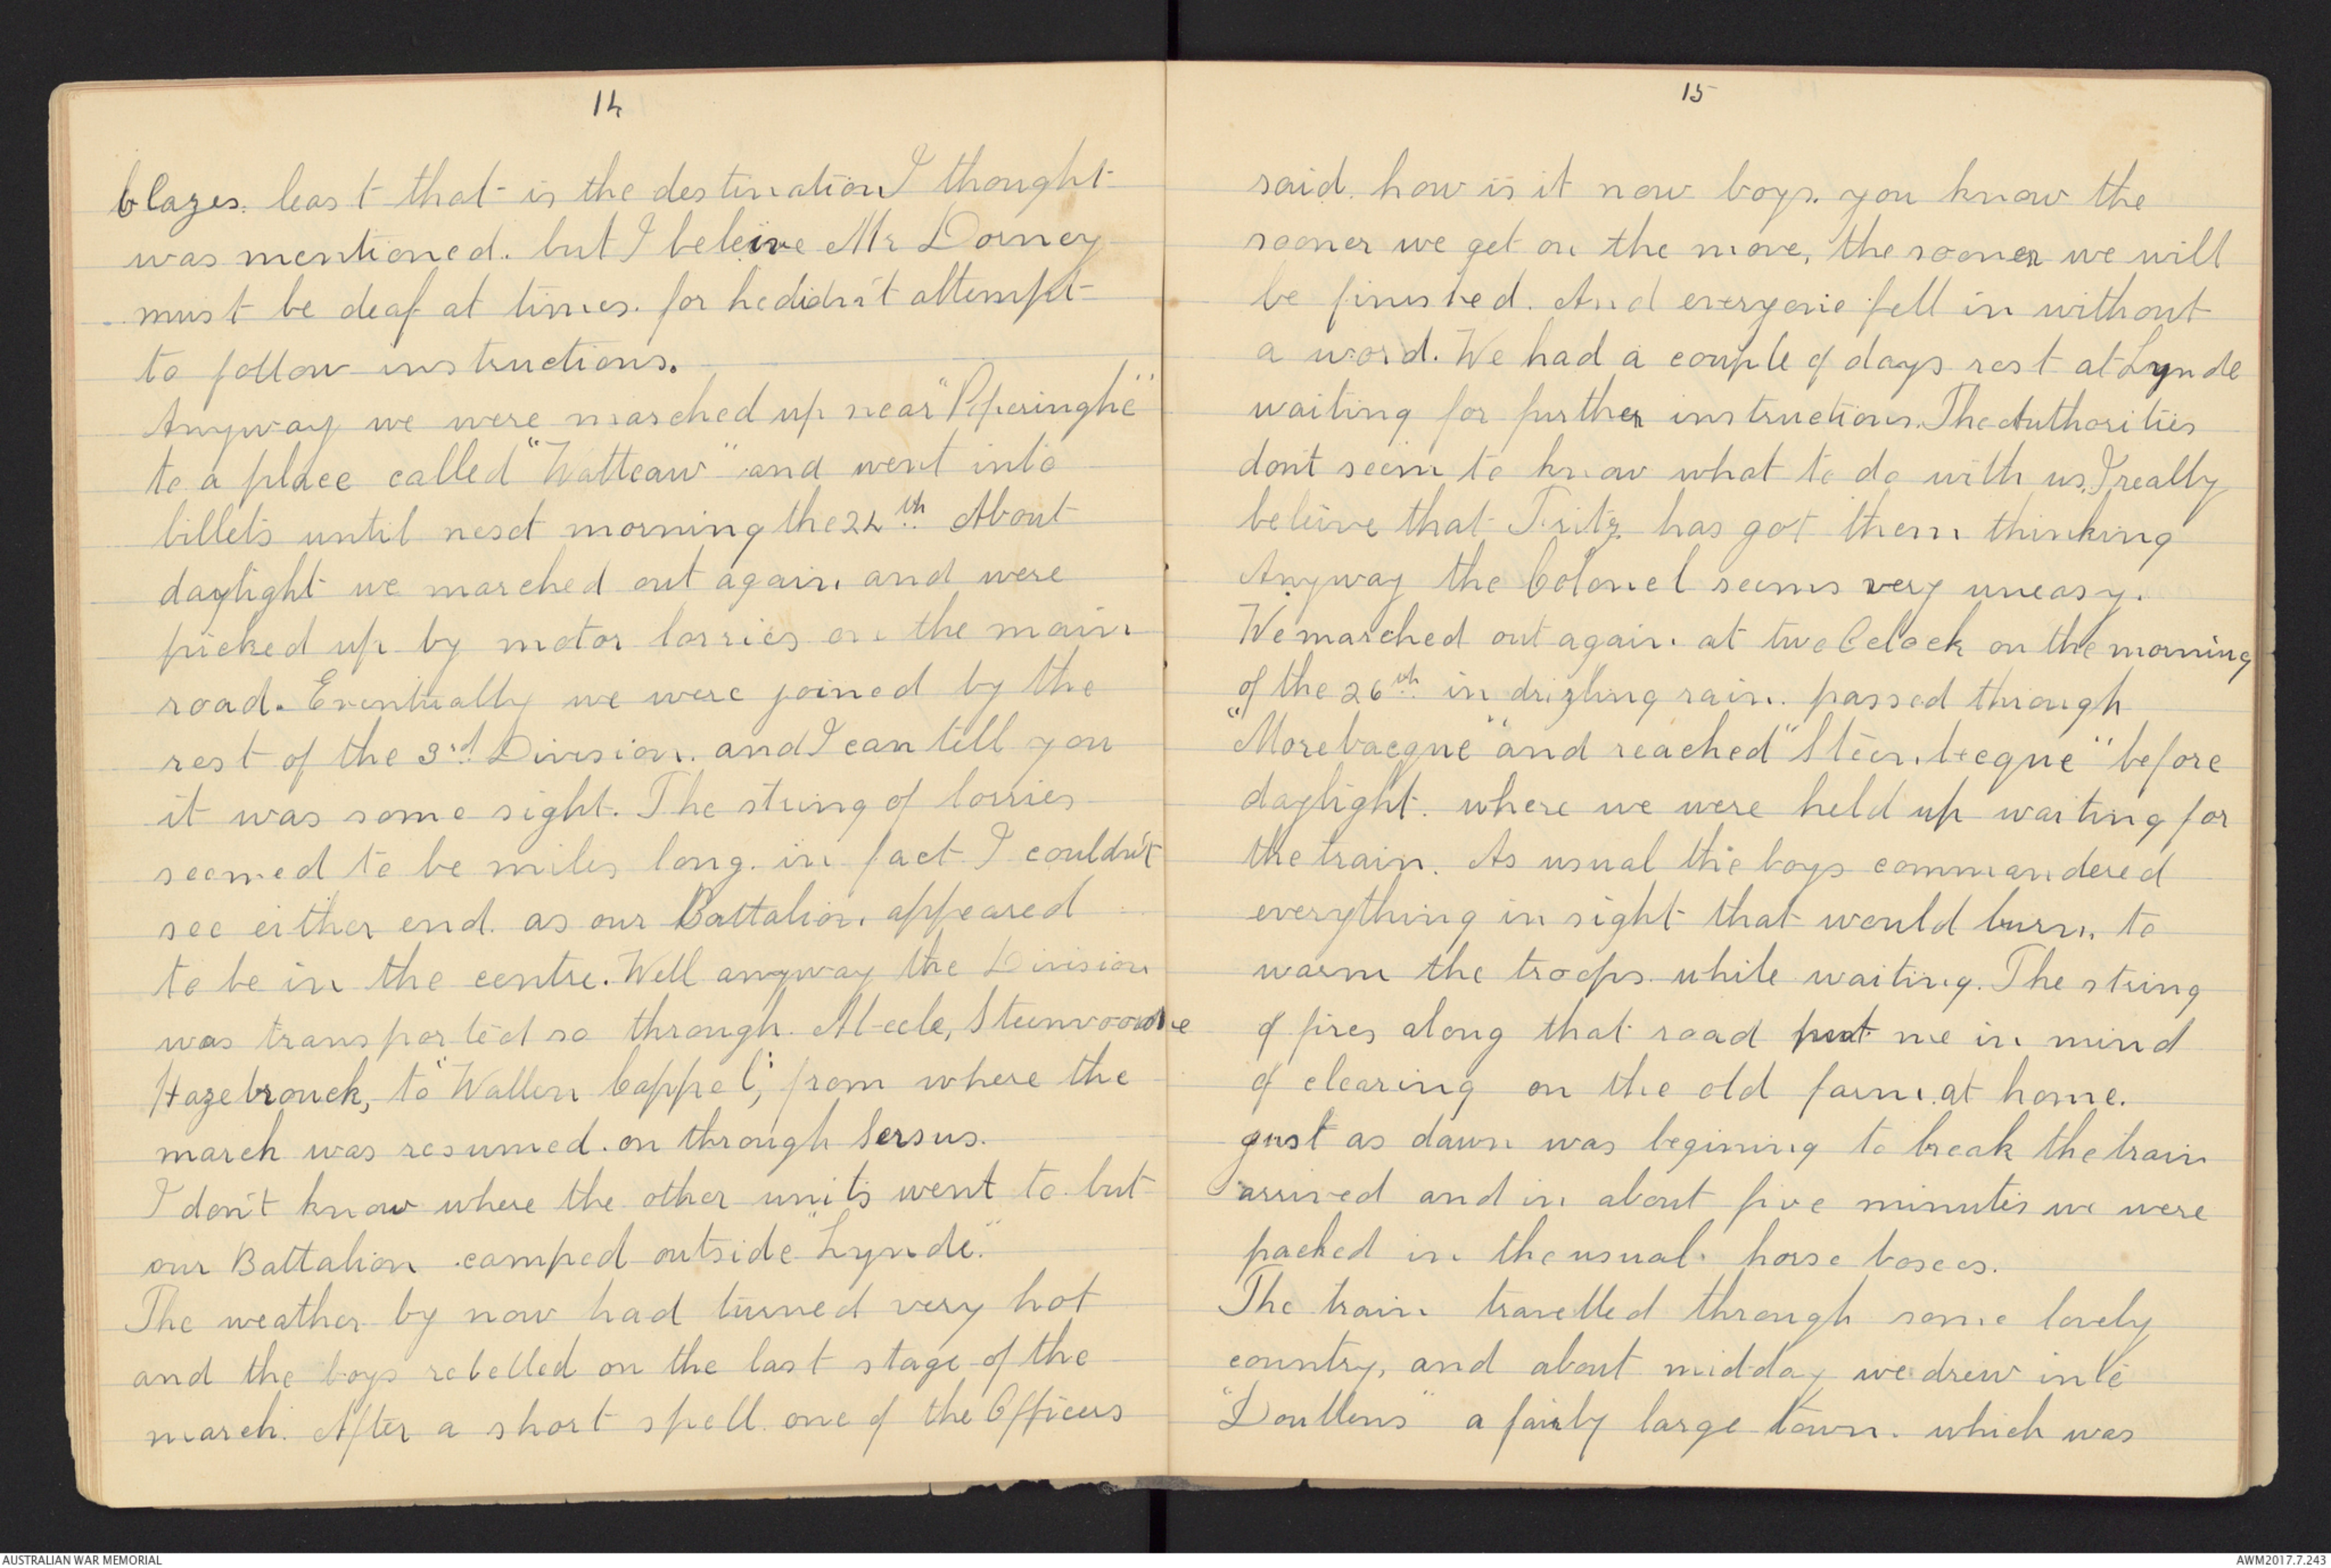 14
blazes. least that is the destination I thought
was mentioned. but I beleive Mr Dorney
must be deaf at times. for he didn't attempt
to follow instructions.
Anyway we were marched up near "Poperinghe"
to a place called "Watteauw" and went into
billets until next morning the 24th. About
daylight we marched out again and were
picked up by motor lorries on the main
road. Eventually we were joined by the
rest of the 3rd. Division. and I can tell you
it was some sight. The string of lorries
seemed to be miles long. in fact I couldn't
see either end. as our Battalion appeared
to be in the centre. Well anyway the Division
was transported so through. Abeele, Steenvoorde
Hazebrouck, to "Wallen Cappel", from where the
march was resumed. on through Sersus.
I don't know where the other units went to. but
our Battalion camped outside "Lynde."
The weather by now had turned very hot
and the boys rebelled on the last stage of the
march. After a short spell one of the Officers
15
said. how is it now boys. you know the
sooner we get on the move, the sooner we will
be finished. And everyone fell in without
a word. We had a couple of days rest at Lynde
waiting for further instructions. The Authorities
don't seem to know what to do with us. I really
beleive that Fritz has got them thinking
Anyway the Colonel seems very uneasy.
We marched out again at two Oclock on the morning
of the 26th. in drizling rain. passed through
"Morebacque" and reached "Steenbecque" before
daylight. where we were held up waiting for
the train. As usual the boys commandered
everything in sight that would burn, to
warm the troops while waiting. The string
of fires along that road put me in mind
of clearing on the old farm at home.
Just as dawn was begining to break the train
arrived and in about five minutes we were
packed in the usual horse boxes.
The train travelled through some lovely
country, and about midday we drew into
"Doullens" a fairly large town. which was
AUSTRALIAN WAR MEMORIAL
AWM2017.7.243